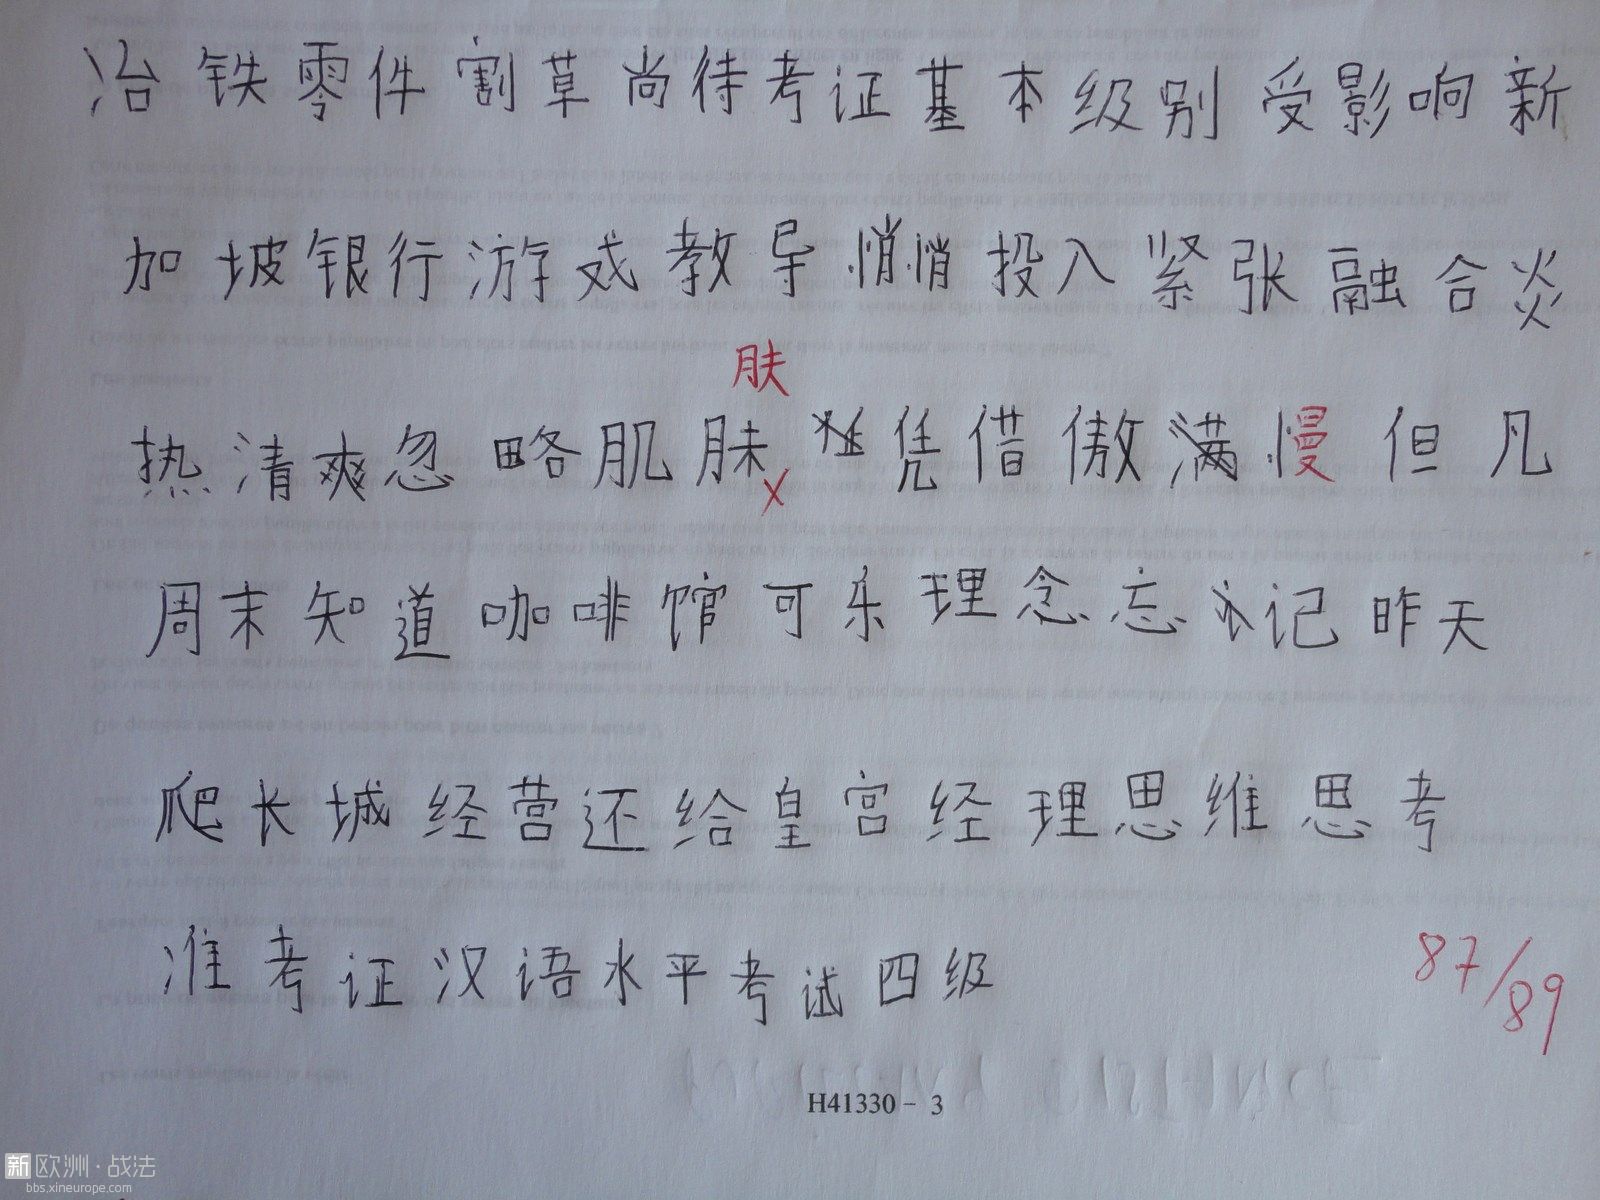 冶铁零件割草尚待考证基本级别受影响新
加坡银行游戏教导悄悄投入紧张融合炎
肤
热清爽忽略肌肤凭借傲满慢但凡
X
周末知道咖啡馆可乐理念忘记昨天
爬长城经营还给皇宫经理思维思考
准考证汉语水平考试四级
87/89
H41330 - 3
新欧洲·战法
bbs.xineurope.com